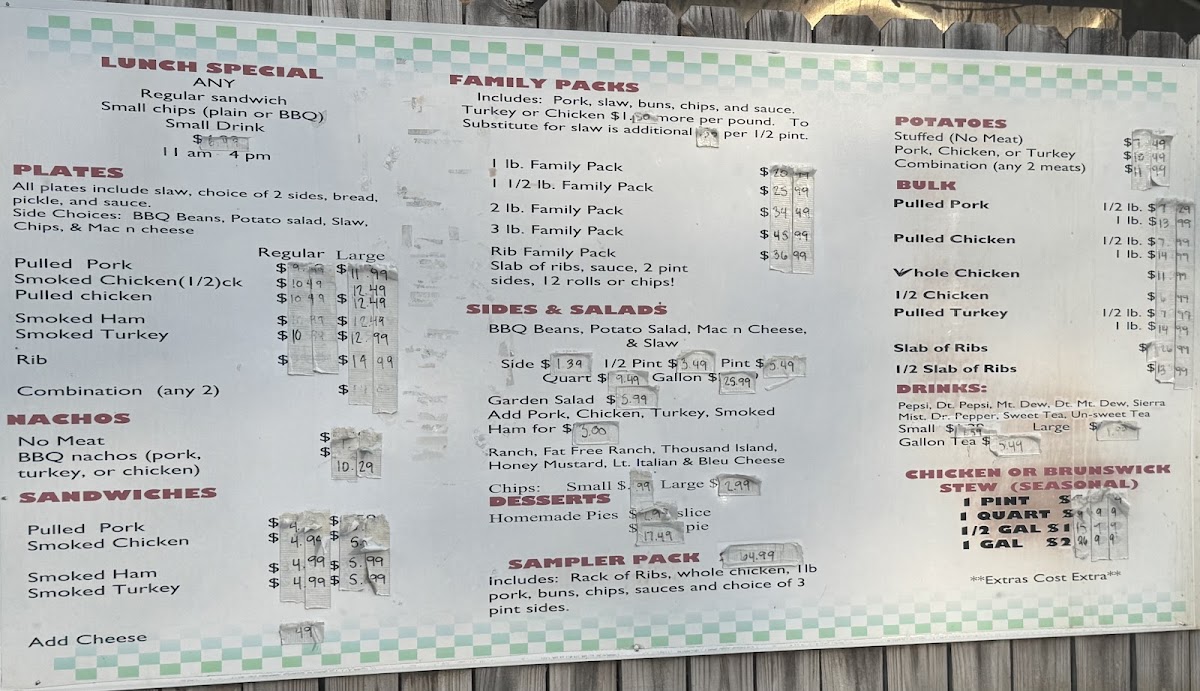 LUNCH SPECIAL
ANY
Regular sandwich
Small chips (plain or BBQ)
Small Drink
$
11 am - 4 pm
PLATES
All plates include slaw, choice of 2 sides, bread,
pickle, and sauce.
Side Choices: BBQ Beans, Potato salad, Slaw,
Chips, & Mac n cheese
Regular Large
Pulled Pork $ $11.99
Smoked Chicken(1/2)ck $10.49 12.49
Pulled chicken $10.49 $12.49
Smoked Ham $12.49
Smoked Turkey $10 $12.99
Rib $14.99
Combination (any 2) $
NACHOS
No Meat $
BBQ nachos (pork, $
turkey, or chicken) 10.29
SANDWICHES
Pulled Pork $ $
Smoked Chicken $4.99 $
Smoked Ham $4.99 $5.99
Smoked Turkey $4.99 $5.99
Add Cheese .49
FAMILY PACKS
Includes: Pork, slaw, buns, chips, and sauce.
Turkey or Chicken more per pound. To
Substitute for slaw is additional per 1/2 pint.
1 lb. Family Pack $
1 1/2 lb. Family Pack $25.99
2 lb. Family Pack $34.49
3 lb. Family Pack $45.99
Rib Family Pack $36.99
Slab of ribs, sauce, 2 pint
sides, 12 rolls or chips!
SIDES & SALADS
BBQ Beans, Potato Salad, Mac n Cheese,
& Slaw
Side $1.39 1/2 Pint $3.49 Pint $5.49
Quart $9.49 Gallon $25.99
Garden Salad $5.99
Add Pork, Chicken, Turkey, Smoked
Ham for $3.00
Ranch, Fat Free Ranch, Thousand Island,
Honey Mustard, Lt. Italian & Bleu Cheese
Chips: Small $.99 Large $2.99
DESSERTS
Homemade Pies $ slice
$17.49 pie
SAMPLER PACK 64.99
Includes: Rack of Ribs, whole chicken, 1lb
pork, buns, chips, sauces and choice of 3
pint sides.
POTATOES
Stuffed (No Meat) $7.49
Pork, Chicken, or Turkey $10.49
Combination (any 2 meats) $11.99
BULK
Pulled Pork 1/2 lb. $
1 lb. $13.99
Pulled Chicken 1/2 lb. $7.99
1 lb. $14.99
Whole Chicken $11.99
1/2 Chicken $
Pulled Turkey 1/2 lb. $7.99
1 lb. $14.99
Slab of Ribs $
1/2 Slab of Ribs $13.99
DRINKS:
Pepsi, Dt. Pepsi, Mt. Dew, Dt. Mt. Dew, Sierra
Mist, Dr. Pepper, Sweet Tea, Un-sweet Tea
Small $ Large $
Gallon Tea $5.49
CHICKEN OR BRUNSWICK
STEW (SEASONAL)
1 PINT $
1 QUART $
1/2 GAL
1 GAL
**Extras Cost Extra**